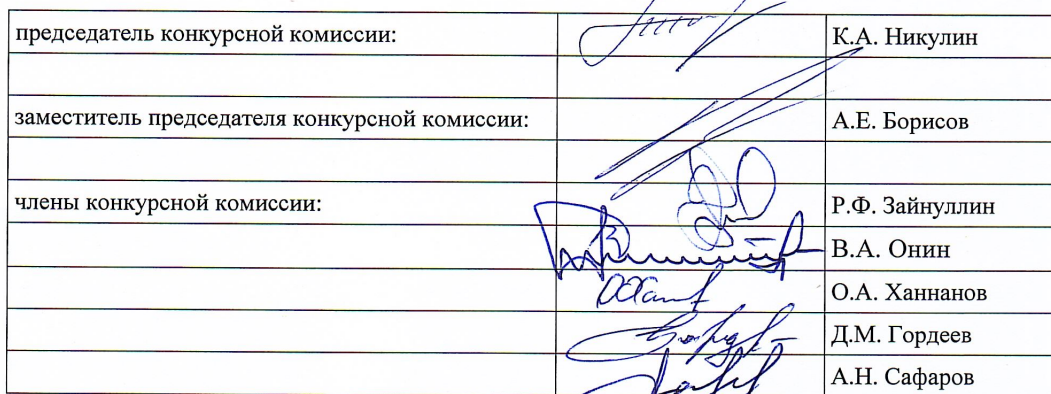 председатель конкурсной комиссии: К.А. Никулин
заместитель председателя конкурсной комиссии: А.Е. Борисов
члены конкурсной комиссии: Р.Ф. Зайнуллин
В.А. Онин
О.А. Ханнанов
Д.М. Гордеев
А.Н. Сафаров